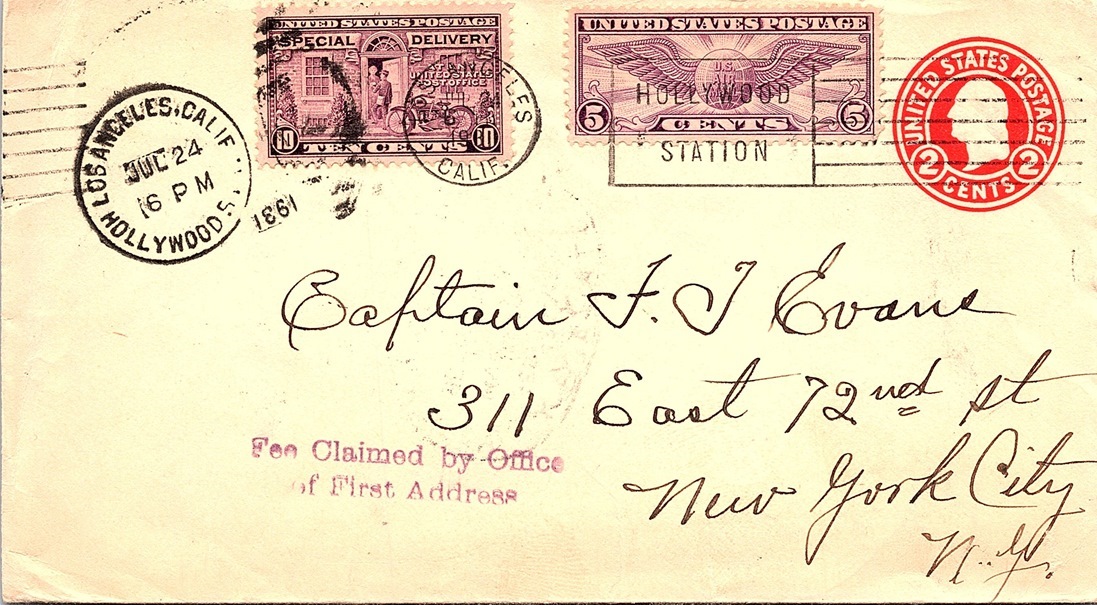 UNITED STATES POSTAGE
SPECIAL DELIVERY
10 TEN CENTS 10
UNITED STATES POSTAGE
U.S.
AIR
5 CENTS 5
UNITED STATES POSTAGE
2 CENTS 2
LOS ANGELES, CALIF.
JUL 24
6 PM
HOLLYWOOD S.
1931
LOS ANGELES
CALIF.
HOLLYWOOD
STATION
Captain F. J Evans
311 East 72nd st
New York City
N.Y.
Fee Claimed by Office
of First Address